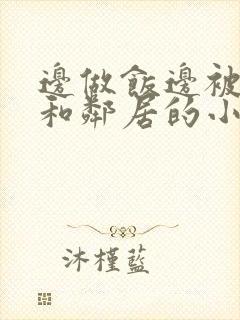 邊做飯邊被
和鄰居的小
沐槿藍